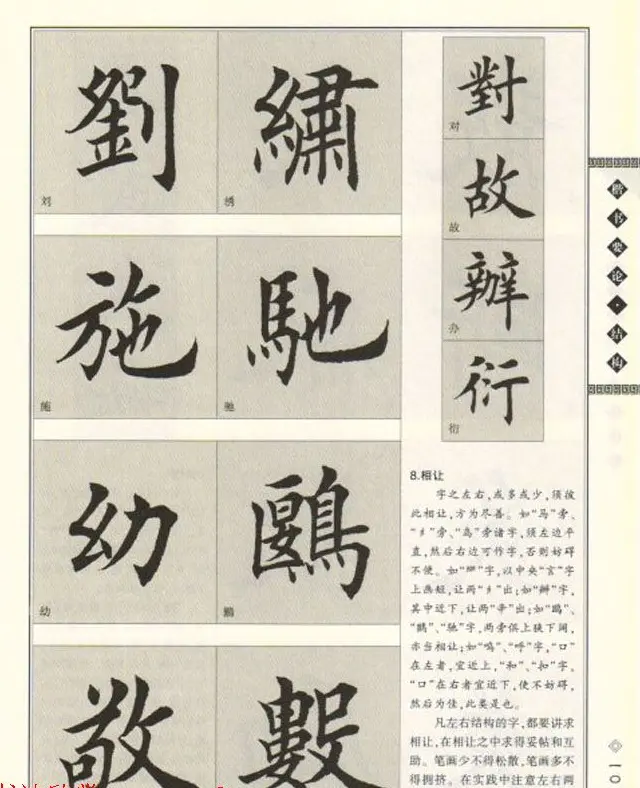 劉
刘
繡
绣
施
施
馳
驰
幼
幼
鷗
鸥
敬
數
對
对
故
故
辦
办
衍
衍
8.相让
字之左右,或多或少,须彼
此相让,方为尽善。如“马”旁、
“纟”旁、“鸟”旁诸字,须左边平
直,然后右边可作字,否则妨碍
不便。如“䜌”字,以中央“言”字
上画短,让两“纟”出;如“辦”字,
其中近下,让两“辛”出;如“鸥”、
“驰”字,两旁俱上狭下阔,
亦当相让;如“鸣”、“呼”字,“口”
在左者,宜近上,“和”、“扣”字,
“口”在右者宜近下,使不妨碍,
然后为佳,此类是也。
凡左右结构的字,都要讲求
相让,在相让之中求得妥帖和互
助。笔画少不得松散,笔画多不
得拥挤。在实践中注意左右两
楷书要论·结构
一〇